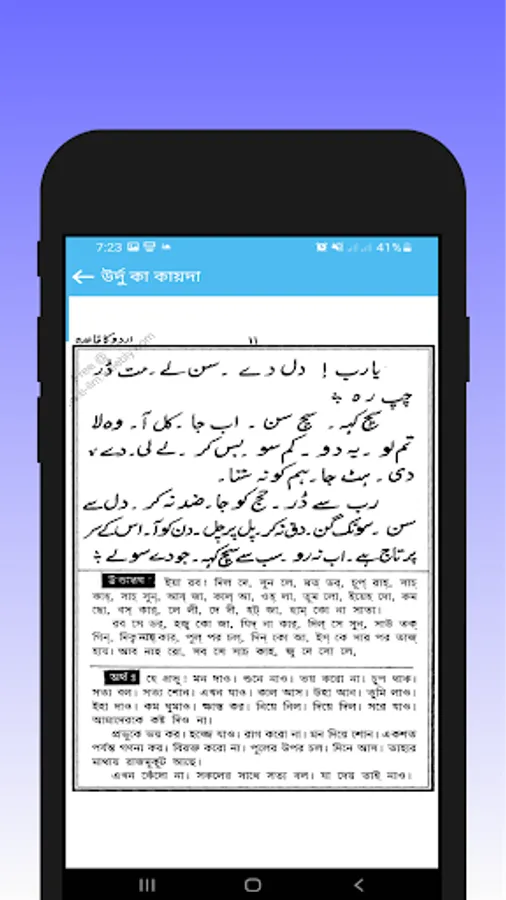 7:23 41%
উর্দু কা কায়দা
اردو کا قاعدہ ۱۱
یارب ! دل دے ۔ سن لے ۔ مت ڈر
چپ رہ ؞
سچ کہہ ۔ سچ سن ۔ اب جا ۔ کل آ ۔ وہ لا
تم لو ۔ یہ دو ۔ کم سو ۔ بس کر ۔ لے لی ۔ دے
دی ۔ ہٹ جا ۔ ہم کو نہ ستا ۔
رب سے ڈر ۔ حج کو جا ۔ ضد نہ کر ۔ دل سے
سن ۔ سو تک گن ۔ دق نہ کر ۔ پل پر چل ۔ دن کو آ ۔ اس کے سر
پر تاج ہے ۔ اب نہ رو ۔ سب سے سچ کہہ ۔ جو دے سو لے ؞
উচ্চারণঃ ইয়া রব! দিল দে, সুন লে, মত্ ডর্, চুপ্ রাহ্, সাচ্
কাহ্, সাচ্ সুন্, আব্ জা, কাল্ আ, ওহ্ লা, তুম লো, ইয়েহ্ দো, কম
ছো, বস্ কার্, লে লী, দে দী, হট্ জা, হাম্ কো না সাতা।
রব সে ডর, হজ্ব কো জা, যিদ্ না কার্, দিল্ সে সুন্, সাউ তক্
গিন্, পুল্ পর চল্, দিন্ কো আ, ইস্ কে সার পর তাজ্
হ্যায়। আব নাহ রো, সব সে সাচ কাহ, জু দে সো লে,
অর্থঃ হে প্রভু! মন দাও। শুনে নাও। ভয় করো না। চুপ থাক।
সত্য বল। সত্য শোন। এখন যাও। কলে আস। উহা আন। তুমি লাও।
ইহা দাও। কম ঘুমাও। ক্ষান্ত কর। নিয়ে নিল। দিয়ে দিল। সরে যাও।
আমাদেরকে কষ্ট দিও না।
প্রভুকে ভয় কর। হজ্জে যাও। রাগ করো না। মন দিয়ে শোন। একশত
পর্যন্ত গণনা কর। বিরক্ত করো না। পুলের উপর চল। দিনে আস। তাহার
মাথায় রাজমুকুট আছে।
এখন কেঁদো না। সকলের সাথে সত্য বল। যা দেয় তাই নাও।